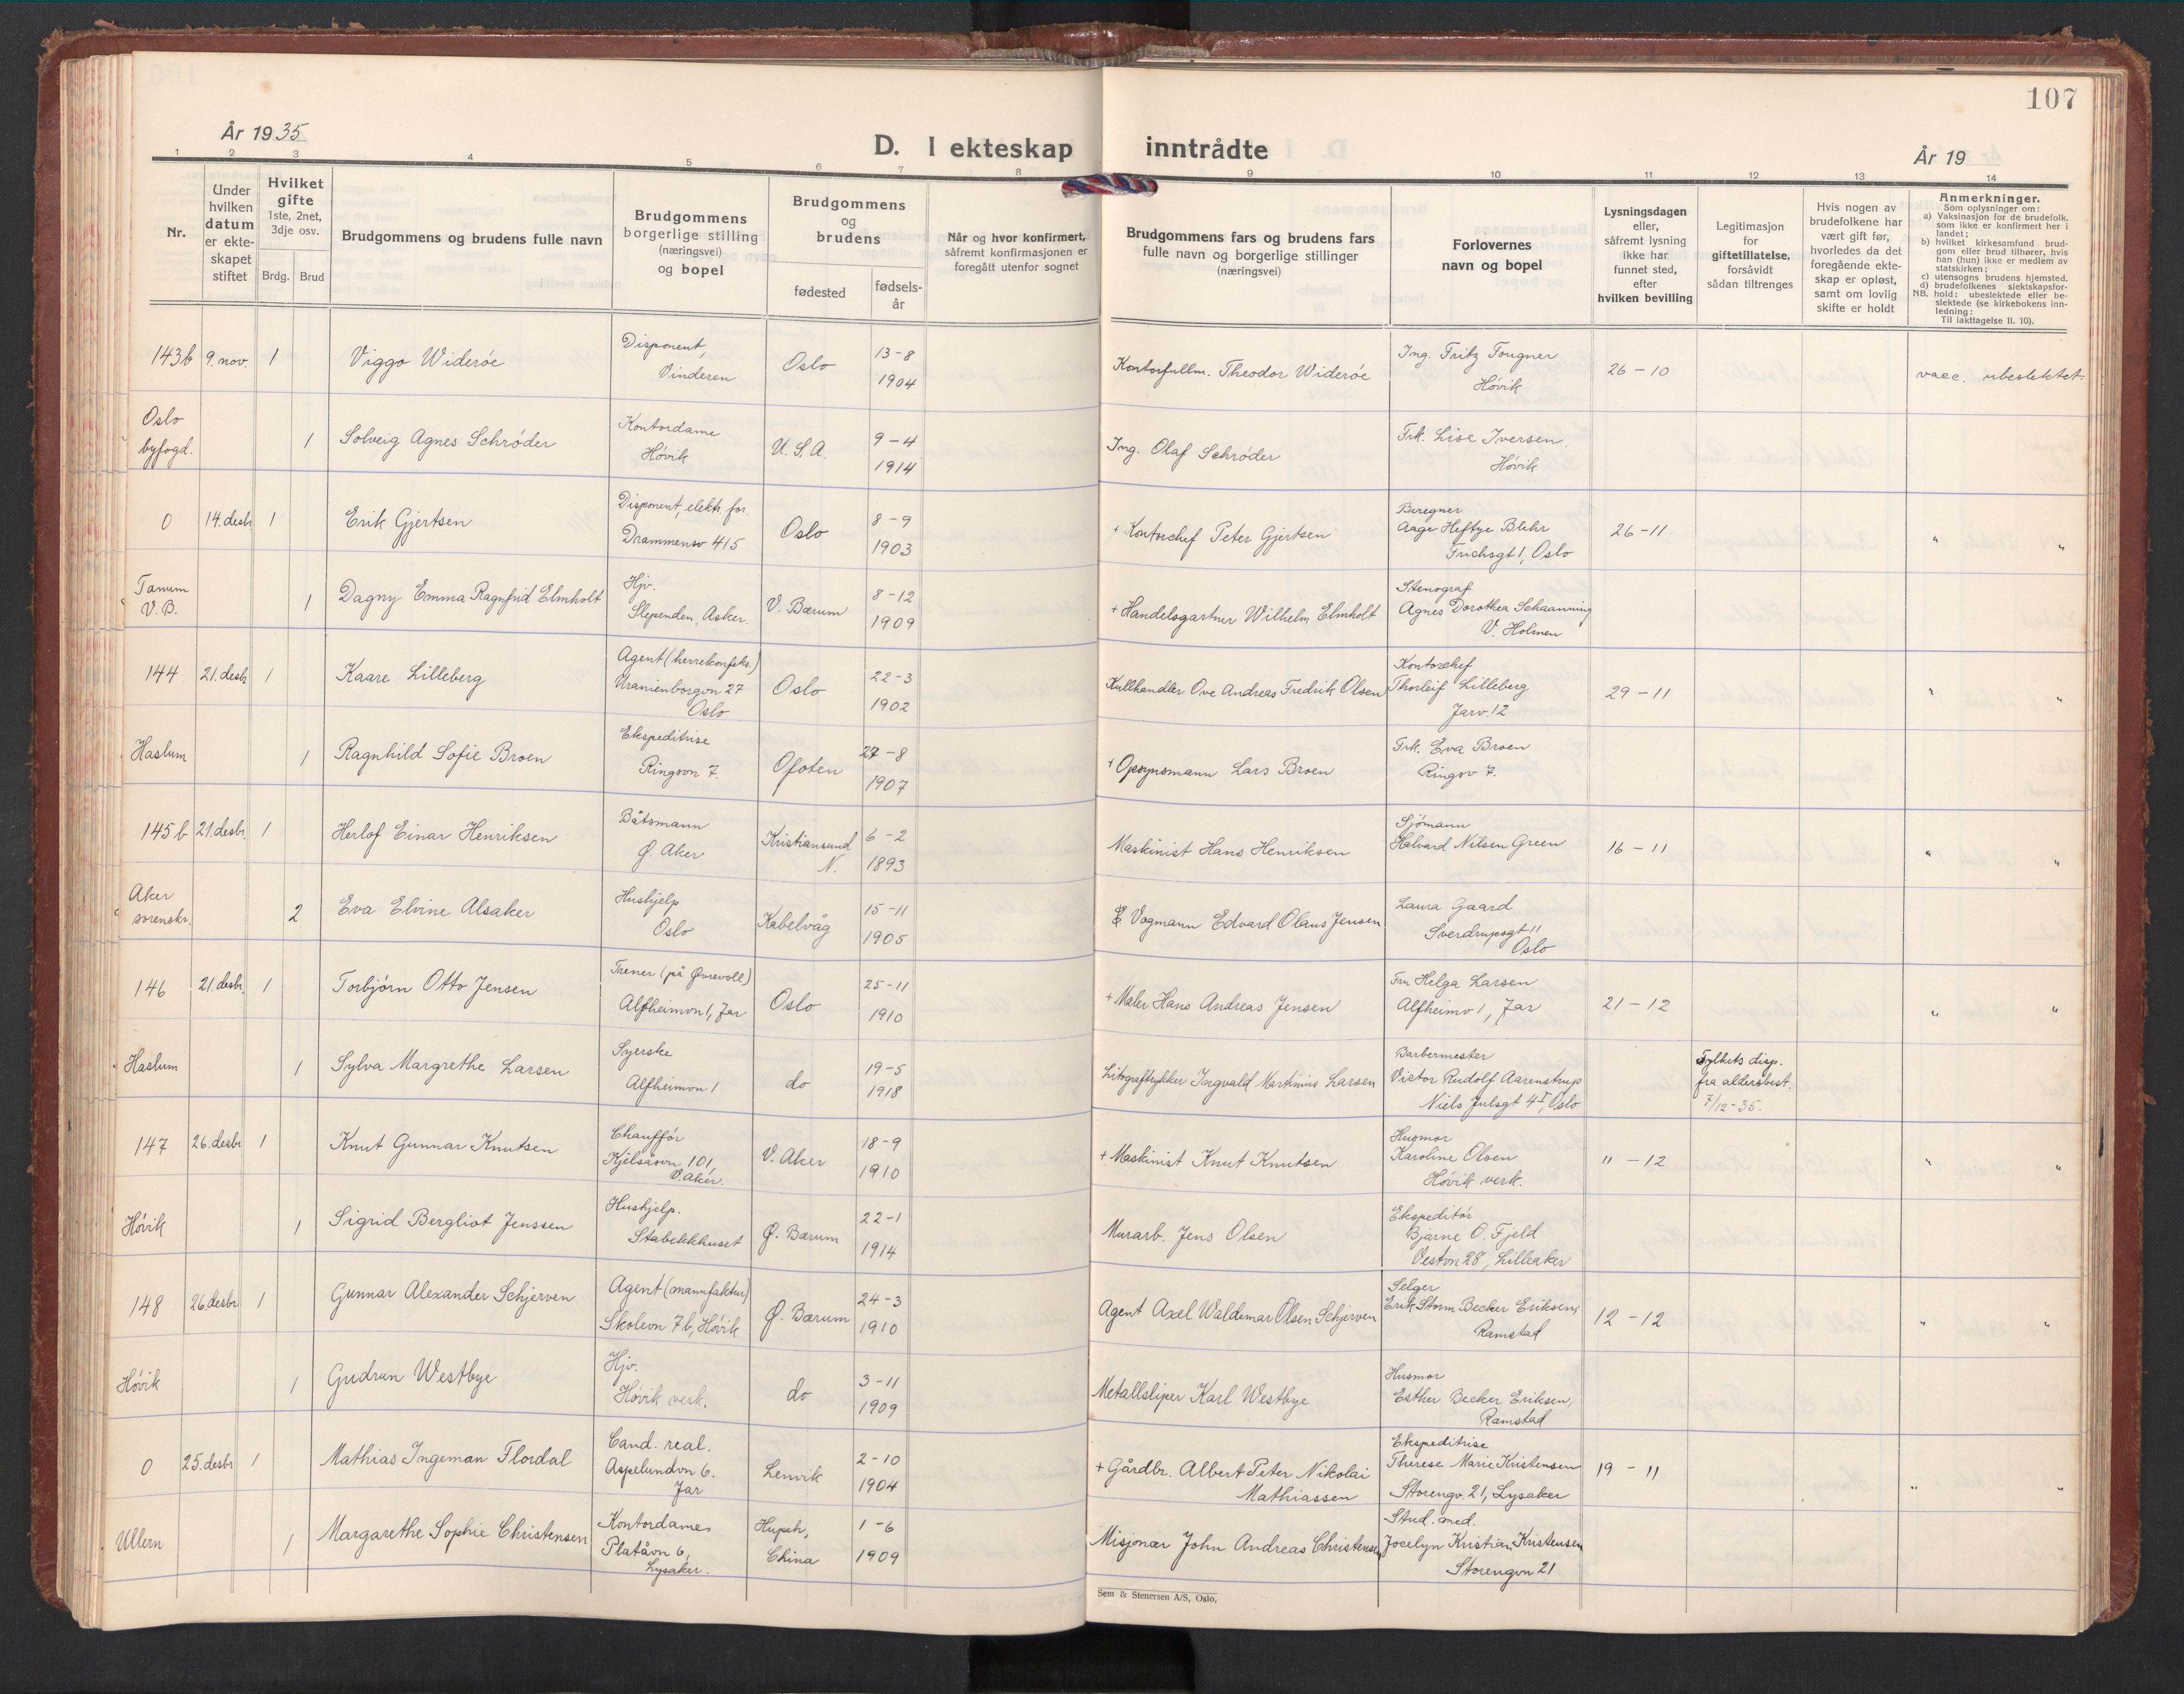 107
År 1935
D. I ekteskap inntrådte
År 19
1 2 3 4 5 6 7 8 9 10 11 12 13 14
Nr.
Under
hvilken
datum
er ekte-
skapet
stiftet
Hvilket
gifte
1ste, 2net,
3dje osv.
Brdg. Brud
Brudgommens og brudens fulle navn
Brudgommens
borgerlige stilling
(næringsvei)
og bopel
Brudgommens
og
brudens
fødested
fødsels-
år
Når og hvor konfirmert,
såfremt konfirmasjonen er
foregått utenfor sognet
Brudgommens fars og brudens fars
fulle navn og borgerlige stillinger
(næringsvei)
Forlovernes
navn og bopel
Lysningsdagen
eller,
såfremt lysning
ikke har
funnet sted,
efter
hvilken bevilling
Legitimasjon
for
giftetillatelse,
forsåvidt
sådan tiltrenges
Hvis nogen av
brudefolkene har
vært gift før,
hvorledes da det
foregående ekte-
skap er opløst,
samt om lovlig
skifte er holdt
Anmerkninger.
Som oplysninger om:
a) Vaksinasjon for de brudefolk,
som ikke er konfirmert her i
landet;
b) hvilket kirkesamfund brud-
gom eller brud tilhører, hvis
han (hun) ikke er medlem av
statskirken;
c) utensogns brudens hjemsted.
d) brudefolkenes slektskapsfor-
NB. hold: ubeslektede eller be-
slektede (se kirkebokens inn-
ledning:
Til iakttagelse II. 10).
143b 9. nov. 1 Viggo Widerøe
Disponent,
Vinderen
Oslo
13-8
1904
Kontorfullm. Theodor Widerøe
Ing. Fritz Tougner
Høvik
26-10
vacc. ubeslektet.
Oslo
byfogd.
1 Solveig Agnes Schrøder
Kontordame
Høvik
U.S.A.
9-4
1914
Ing. Olaf Schrøder
Frk. Lise Iversen.
Høvik
0 14. desbr 1 Erik Gjertsen
Disponent, elektr. for.
Drammensv 415
Oslo
8-9
1903
+ Kontorchef Peter Gjertsen
Beregner
Aage Heftye Blehr
Frichsgt 1, Oslo
26-11
" "
Tanum
V. B.
1 Dagny Emma Ragnfrid Elmholt
Hjv.
Slependen, Asker.
V. Bærum
8-12
1909
+ Handelsgartner Wilhelm Elmholt
Stenograf
Agnes Dorothea Schaanning
V. Holmen
144 21. desbr 1 Kaare Lilleberg
Agent (herrekonfeks.)
Uranienborgvn 27
Oslo
Oslo
22-3
1902
Kullhandler Ove Andreas Fredrik Olsen
Kontorchef
Thorleif Lilleberg
Jarv. 12
29-11
" "
Haslum
1 Ragnhild Sofie Broen
Ekspeditrise
Ringsvn 7.
Ofoten
27-8
1907
+ Opsynsmann Lars Broen
Frk. Eva Broen
Ringsv 7.
145b 21. desbr. 1 Herlof Einar Henriksen
Båtsmann
Ø. Aker
Kristiansund
N.
6-2
1893
Maskinist Hans Henriksen
Sjömann
Halvard Nilsen Green
16-11
" "
Aker
sorenskr.
2 Eva Elvine Alsaker
Hushjelp
Oslo
Kabelvåg
15-11
1905
Vogmann Edvard Olaus Jensen
Laura Gaard
Sverdrupsgt 11
Oslo
146 21. desbr. 1 Torbjørn Otto Jensen
Trener (på Øvrevoll)
Alfheimvn 1, Jar
Oslo
25-11
1910
+ Maler Hans Andreas Jensen
Fru Helga Larsen
Alfheimv 1, Jar
21-12
" "
Haslum
1 Sylva Margrethe Larsen
Syerske
Alfheimvn 1
do
19-5
1918
Litograftrykker Ingvald Martinius Larsen
Barbermester
Victor Rudolf Aarenstrup
Niels Julsgt 4 I, Oslo
Fylkets disp.
fra aldersbest.
7/12-35.
147 26. desbr 1 Knut Gunnar Knutsen
Chauffør
Kjelsåsvn 101,
V. Aker.
V. Aker
18-9
1910
+ Maskinist Knut Knutsen
Husmor
Karoline Olsen
Høvik verk.
11-12
" "
Høvik
1 Sigrid Bergliot Jenssen
Hushjelp.
Stabekkhuset
Ø. Bærum
22-1
1914
Murarb. Jens Olsen
Ekspeditør
Bjarne O. Fjeld
Vestvn 28, Lilleaker
148 26. desbr 1 Gunnar Alexander Schjerven
Agent (manufaktur)
Skolevn 7b, Høvik
Ø. Bærum
24-3
1910
Agent Axel Waldemar Olsen Schjerven
Selger
Erik Storm Becker Eriksen,
Ramstad
12-12
" "
Høvik
1 Gudrun Westbye
Hjv.
Høvik verk.
do
3-11
1909
Metallsliper Karl Westbye
Husmor
Esther Becker Eriksen,
Ramstad
0 25. desbr 1 Mathias Ingeman Flordal
Cand. real.
Aspelundvn 6.
Jar
Lenvik
2-10
1904
+ Gårdbr. Albert Peter Nikolai
Mathiassen
Ekspeditrise
Therese Marie Kristensen
Storengv. 21, Lysaker
19-11
" "
Ullern
1 Margarethe Sophie Christensen
Kontordame
Platåvn 6,
Lysaker.
Hupeh,
China
1-6
1909
Misjonær John Andreas Christensen
Stud. med.
Jocelyn Kristian Kristensen
Storengvn 21
Sem & Stenersen A/S, Oslo,